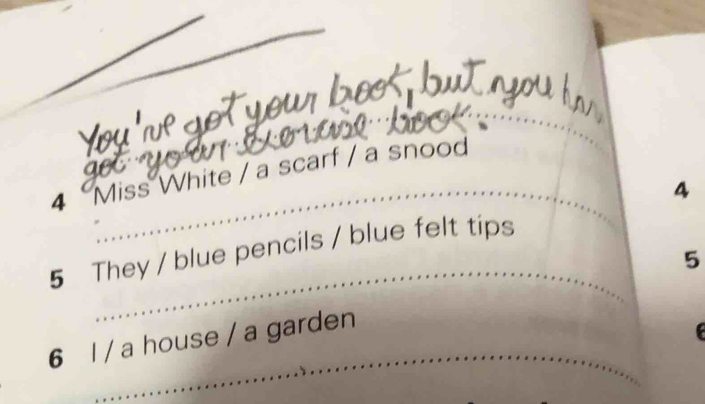 You've got your book, but you hav
got your exercise book.
4 Miss White / a scarf / a snood
5 They / blue pencils / blue felt tips
6 I / a house / a garden
4
5
6